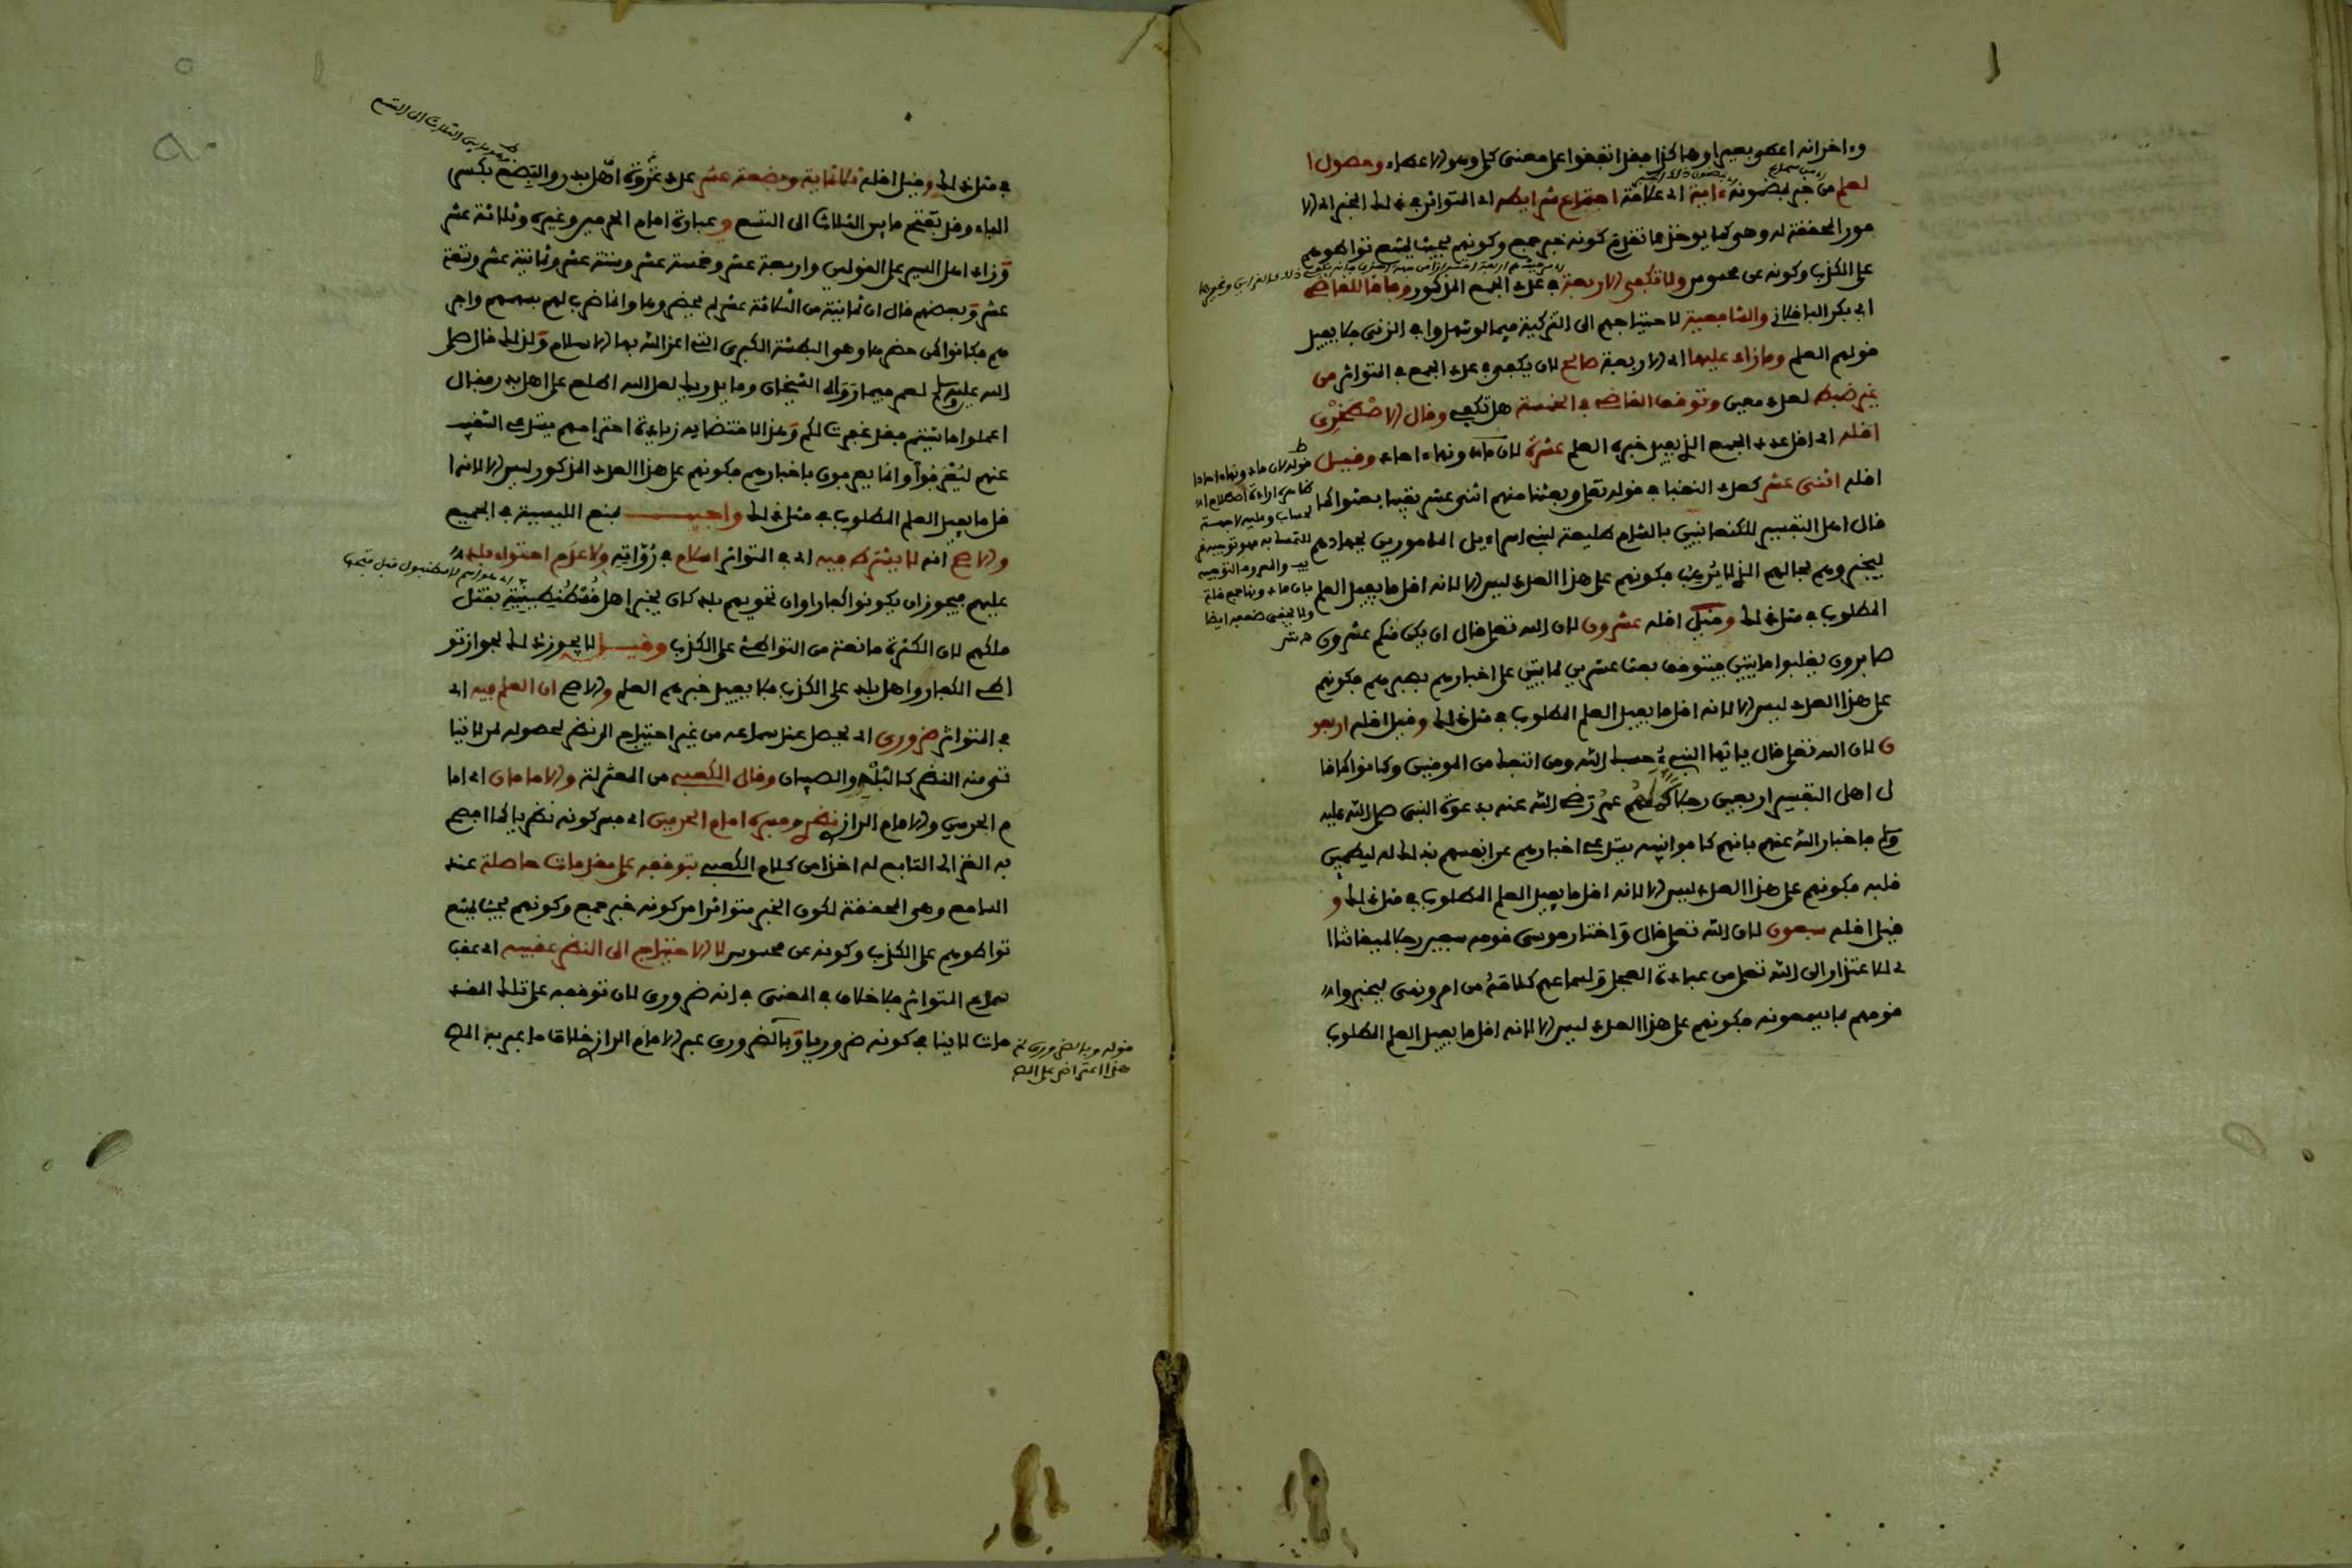 وءاخر انه اعطى بعيرا وهاكذا فقد اتفقوا على معنى كلي وهو الاعطاء وحصول ا
لعلم من خبر بمضمونه ءاية اي علامة اجتماع شرايطه اي المتواتر في ذلك الخبر اي الا
مور المحققة له وهي كما يوخذ مما تقدم كونه خبر جمع وكونهم بحيث يمتنع تواطوهم
على الكذب وكونه عن محسوس ولا تكفي الاربعة في عدد الجمع المذكور وفاقا للقاضي
ابي بكر الباقلاني والشافعية لاحتياجهم الى التزكية فيما لو شهدوا بالزنى فلا يفيد
قولهم العلم وما زاد عليها اي الاربعة صالح لان يكفي في عدد الجمع في المتواتر من
غير ضبط لعدد معين وتوقف القاضي في الخمسة هل تكفي وقال الاصطخري
اقله اي اقل عدد الجمع الذي يفيد خبره العلم عشرة لان ما دونها ءاحاد وقيل
اقله اثنى عشر كعدد النقبا في قوله تعلى وبعثنا منهم اثنى عشر نقيبا بعثوا كما
قال اهل التفسير للكنعانيين بالشام طليعة لبني اسراءيل المامورين بجهادهم
ليخبروهم بحالهم الذي لا يرهب فكونهم على هذا العدد ليس الا لانه اقل ما يفيد العلم
المطلوب في مثل ذلك وقيل اقله عشرون لان الله تعلى قال ان يكن منكم عشرون
صابرون يغلبوا مايتين فيتوقف بعث عشرين لمايتين على اخبارهم بصبرهم فكونهم
على هذا العدد ليس الا لانه اقل ما يفيد العلم المطلوب في مثل ذلك وقيل اقله اربعو
ن لان الله تعلى قال يايها النبيء حسبك الله ومن اتبعك من المومنين وكانوا كما قا
ل اهل التفسير اربعين رجلا كملهم عمر رضي الله عنه بدعوة النبي صلى الله عليه
وسلم فاخبار الله عنهم بانهم كافوا نبيه يستدعي اخبارهم عن انفسهم بذلك له ليطمين
قلبه فكونهم على هذا العدد ليس الا لانه اقل ما يفيد العلم المطلوب في مثل ذلك و
قيل اقله سبعون لان الله تعلى قال واختار موسى قومه سبعين رجلا لميقاتنا ا
ي للاعتذار الى الله تعلى من عبادة العجل ولسماعهم كلامه من امر ونهي ليخبروا
قومهم بما يسمعونه فكونهم على هذا العدد ليس الا لانه اقل ما يفيد العلم المطلوب
قوله لان ما دونها ءاحاد
في مثل ذلك وقيل اقله ثلاثماية وبضعة عشر عدد غزوة اهل بدر والبضع بكسر
الباء وقد تفتح ما بين الثلاث الى التسع وعبارة امام الحرمين وغيره وثلاثة عشر
وزاد اهل السير على القولين واربعة عشر وخمسة عشر وستة عشر وثمانية عشر وتسعة
عشر وبعضهم قال ان ثمانية من الثلاثة عشر لم يحضروها وانما ضرب لهم بسهمهم واجر
هم فكانوا كمن حضرها وهو البطشة الكبرى التي اعز الله بها الاسلام ولذلك قال صلى
الله عليه وسلم لعمر فيما رواه الشيخان وما يدريك لعل الله اطلع على اهل بدر فقال
اعملوا ما شيتم فقد غفرت لكم وهذا لاقتضايه زيادة احترامهم يستدعي التنقيب
عنهم ليعرفوا وانما يعرفون باخبارهم فكونهم على هذا العدد المذكور ليس الا لانه ا
قل ما يفيد العلم المطلوب في مثل ذلك واجيب بمنع الليسية في الجميع
والاصح انه لا يشترط فيه اي في المتواتر اسلام في رواته ولا عدم احتواء بلد
عليهم فيجوز ان يكونوا كفارا وان تحويهم بلد كان يخبر اهل قسطنطينية بقتل
ملكهم لان الكثرة مانعة من التواطئ على الكذب وقيل لا يجوز ذلك لجواز تو
اطئ الكفار واهل بلد على الكذب فلا يفيد خبرهم العلم والاصح ان العلم فيه اي
في المتواتر ضروري اي يحصل عند سماعه من غير احتياج الى نظر لحصوله لمن لا يتا
تى منه النظر كالبله والصبيان وقال الكعبي من المعتزلة والامامان اي اما
م الحرمين والامام الرازي نظري وفسره امام الحرمين اي فسر كونه نظريا كما افصح
به الغزالي التابع له اخذا من كلام الكعبي بتوقفه على مقدمات حاصلة عند
السامع وهي المحققة لكون الخبر متواترا من كونه خبر جمع وكونهم بحيث يمتنع
تواطوهم على الكذب وكونه عن محسوس لا الاحتياج الى النظر عقيبه اي عقب
سماع المتواتر فلا خلاف في المعنى في انه ضروري لان توقفه على تلك المقد
مات لا ينافي كونه ضروريا وبالضروري عبر الامام الرازي خلاف ما عبر به المص
قوله وبالضروري
هذا اعتراض على المص